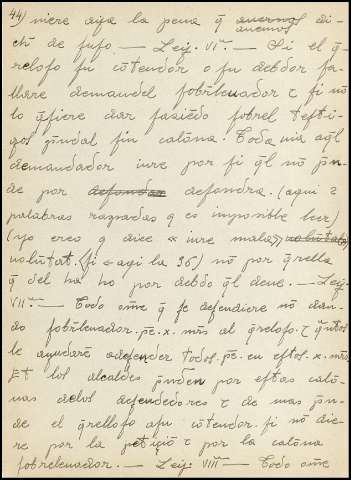 44) niere aya la pena q̃ auemos di-
cħ de ſuſo. — Ley. VIª. — Si el q̃-
reloſo ſu cõtendor o ſu debdor fa-
llare demandel ſobrleuador ⁊ ſi nõ
lo q̃ſiere dar faziẽdo ſobrel teſti-
gos p̃ndal ſin calõna. Toda uia aq̃l
demandador iure por ſi q̃l nõ p̃n-
de por defondra. (aqui 2
palabras raspadas q es imposible leer)
(yo creo q dice « iure mala »)
uolũtat. (fi — aqi la 36) nõ por q̃rella
q̃ del ha ho por debdo q̃l deue. — Ley.
VIIª. — Todo om̃e q̃ ſe defendiere nõ dan-
do ſobrleuador. pe. x. mr̃s al q̃reloſo. ⁊ q̃ntos
le ayudarẽ adefender todos. pe. en eſtos. x. mr̃s
Et los alcaldes p̃nden por eſtas calõ-
nas delos defendedores ⁊ de mas p̃n-
de el q̃relloſo aſu cõtendor. ſi nõ die-
re por la petiçiõ ⁊ por la calõna
ſobreleuador. — Ley. VIIIª — Todo ome